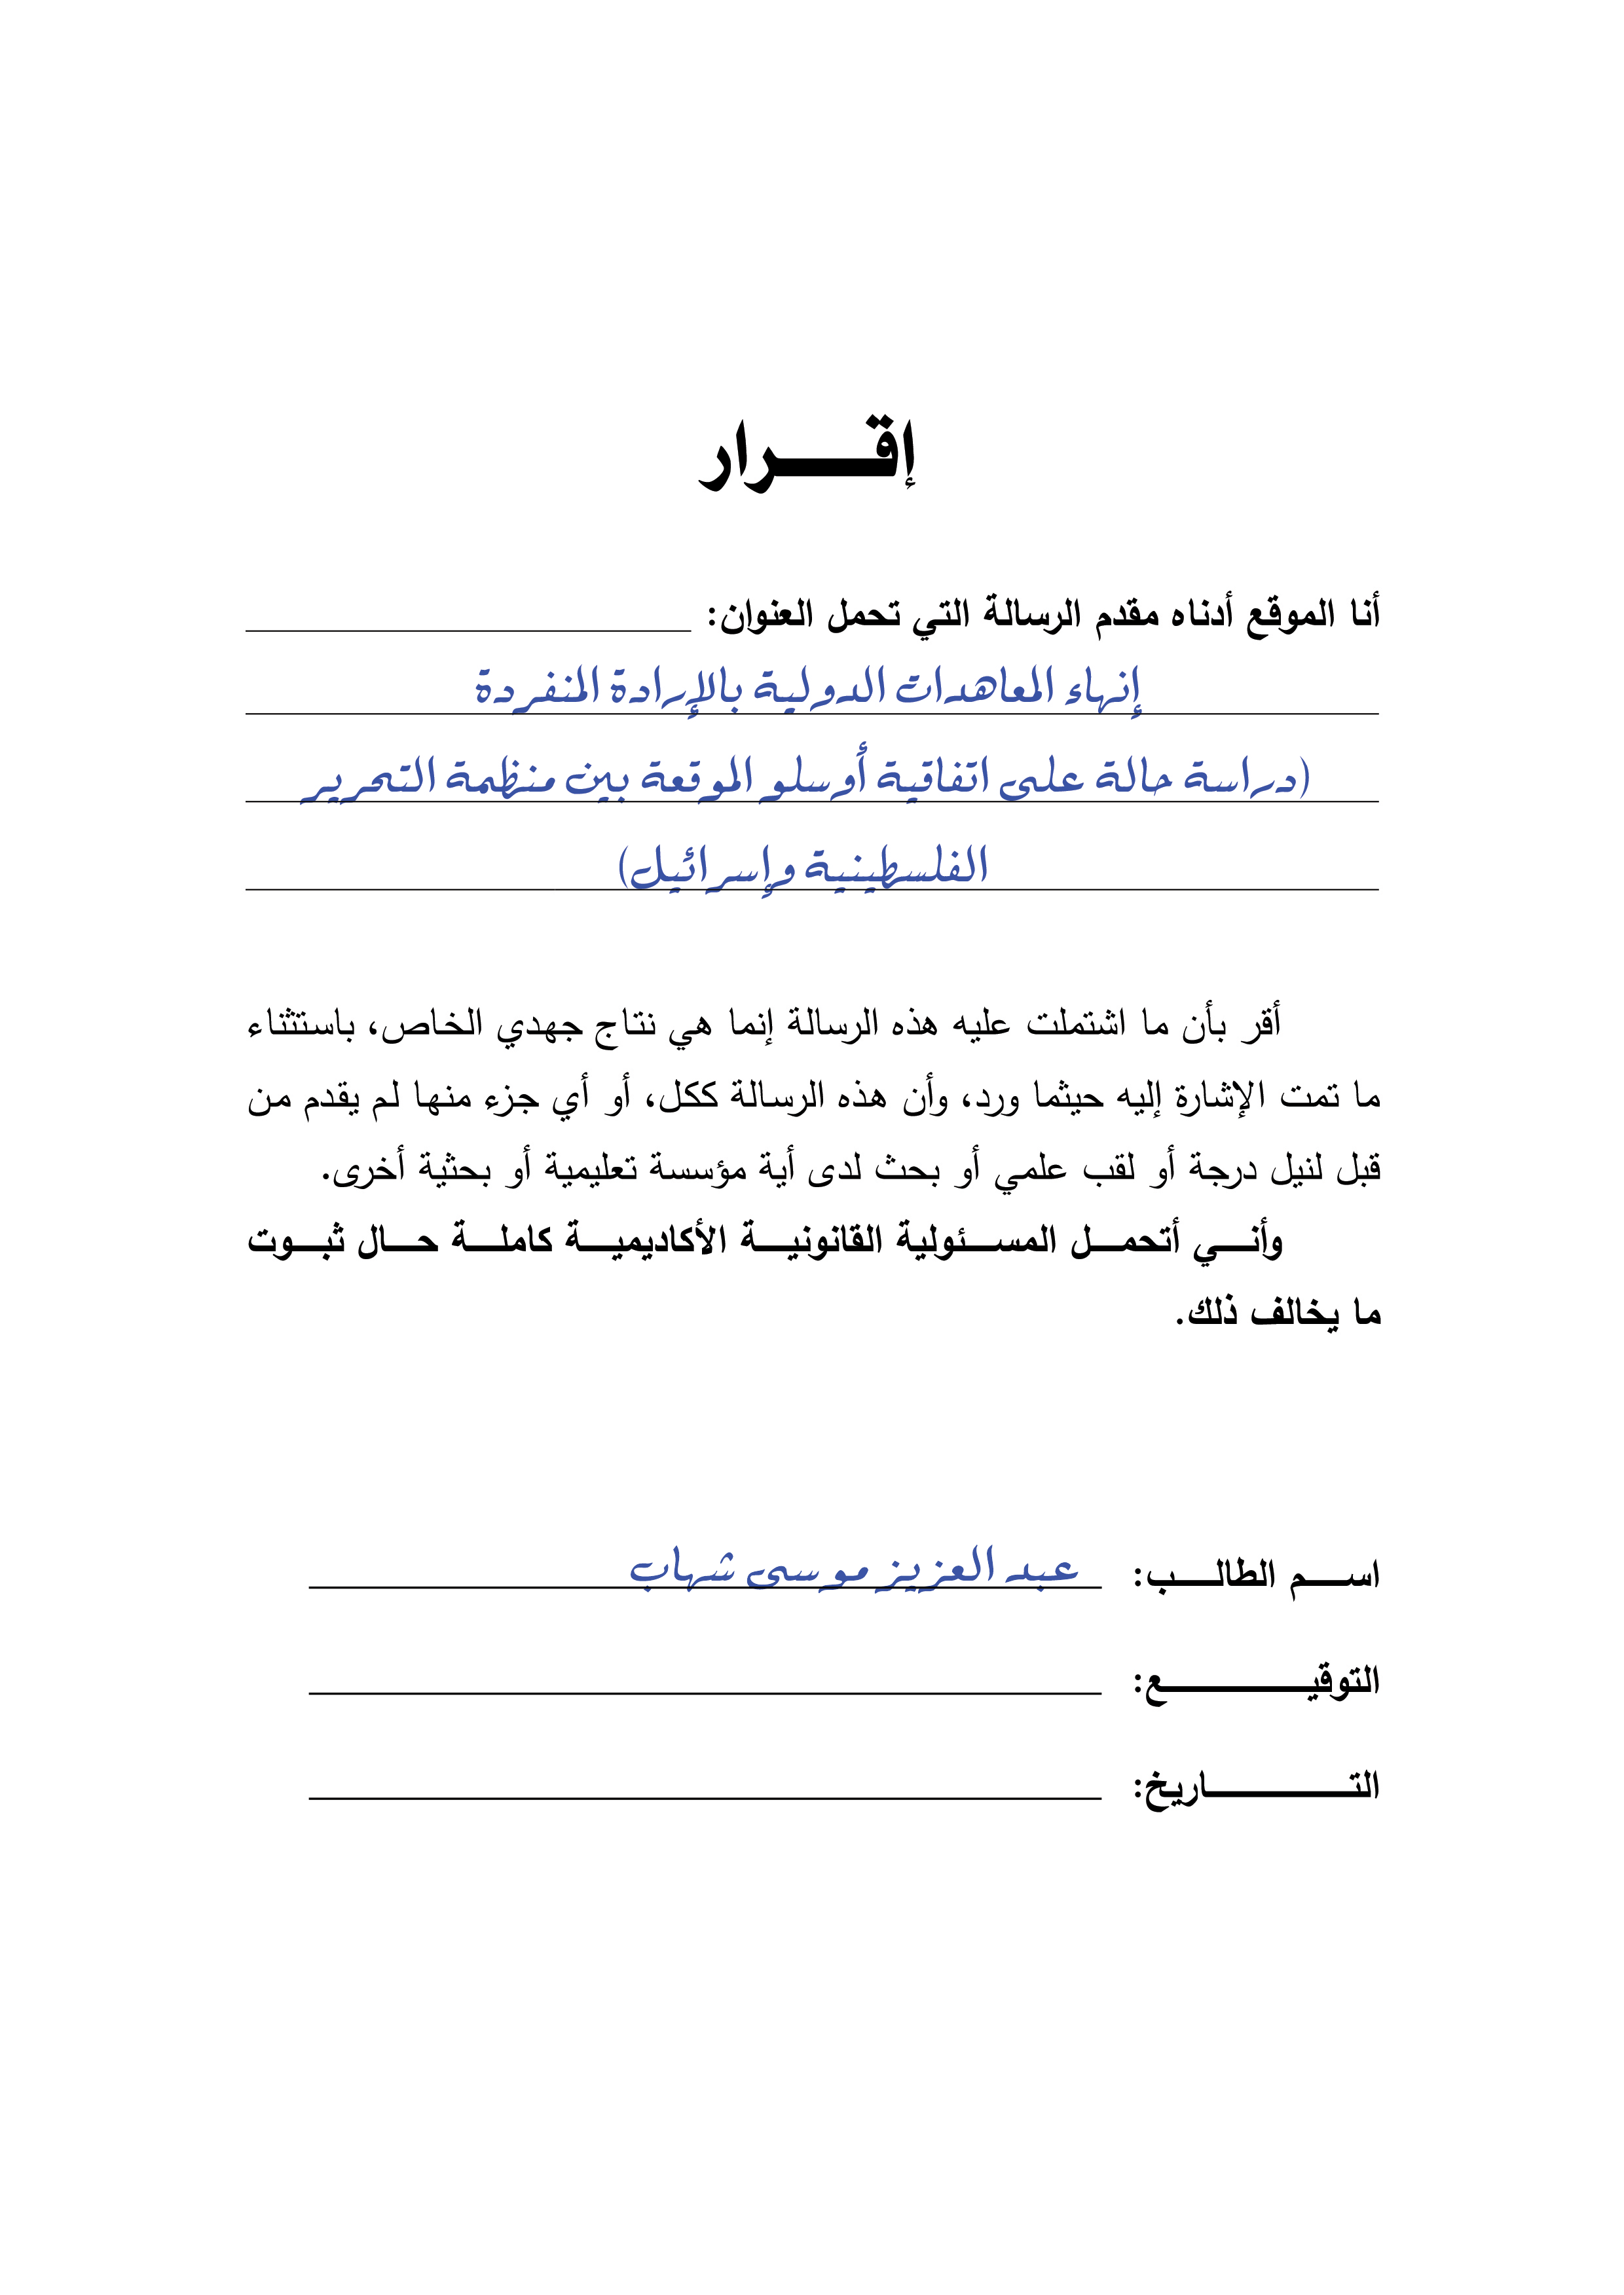 إقـــــرار
أنا الموقع أدناه مقدم الرسالة التي تحمل العنوان:
إنهاء المعاهدات الدولية بالإرادة المنفردة
(دراسة حالة على اتفاقية أوسلو الموقعة بين منظمة التحرير
الفلسطينية وإسرائيل)
أقر بأن ما اشتملت عليه هذه الرسالة إنما هي نتاج جهدي الخاص، باستثناء
ما تمت الإشارة إليه حيثما ورد، وأن هذه الرسالة ككل، أو أي جزء منها لم يقدم من
قبل لنيل درجة أو لقب علمي أو بحث لدى أية مؤسسة تعليمية أو بحثية أخرى.
وأنـــي أتحمـــل المســـئولية القانونيـــة الأكاديميـــة كاملـــة حـــال ثبـــوت
ما يخالف ذلك.
اســـم الطالـــب: عبد العزيز موسى شهاب
التوقيـــــــــع:
التـــــــــاريخ: